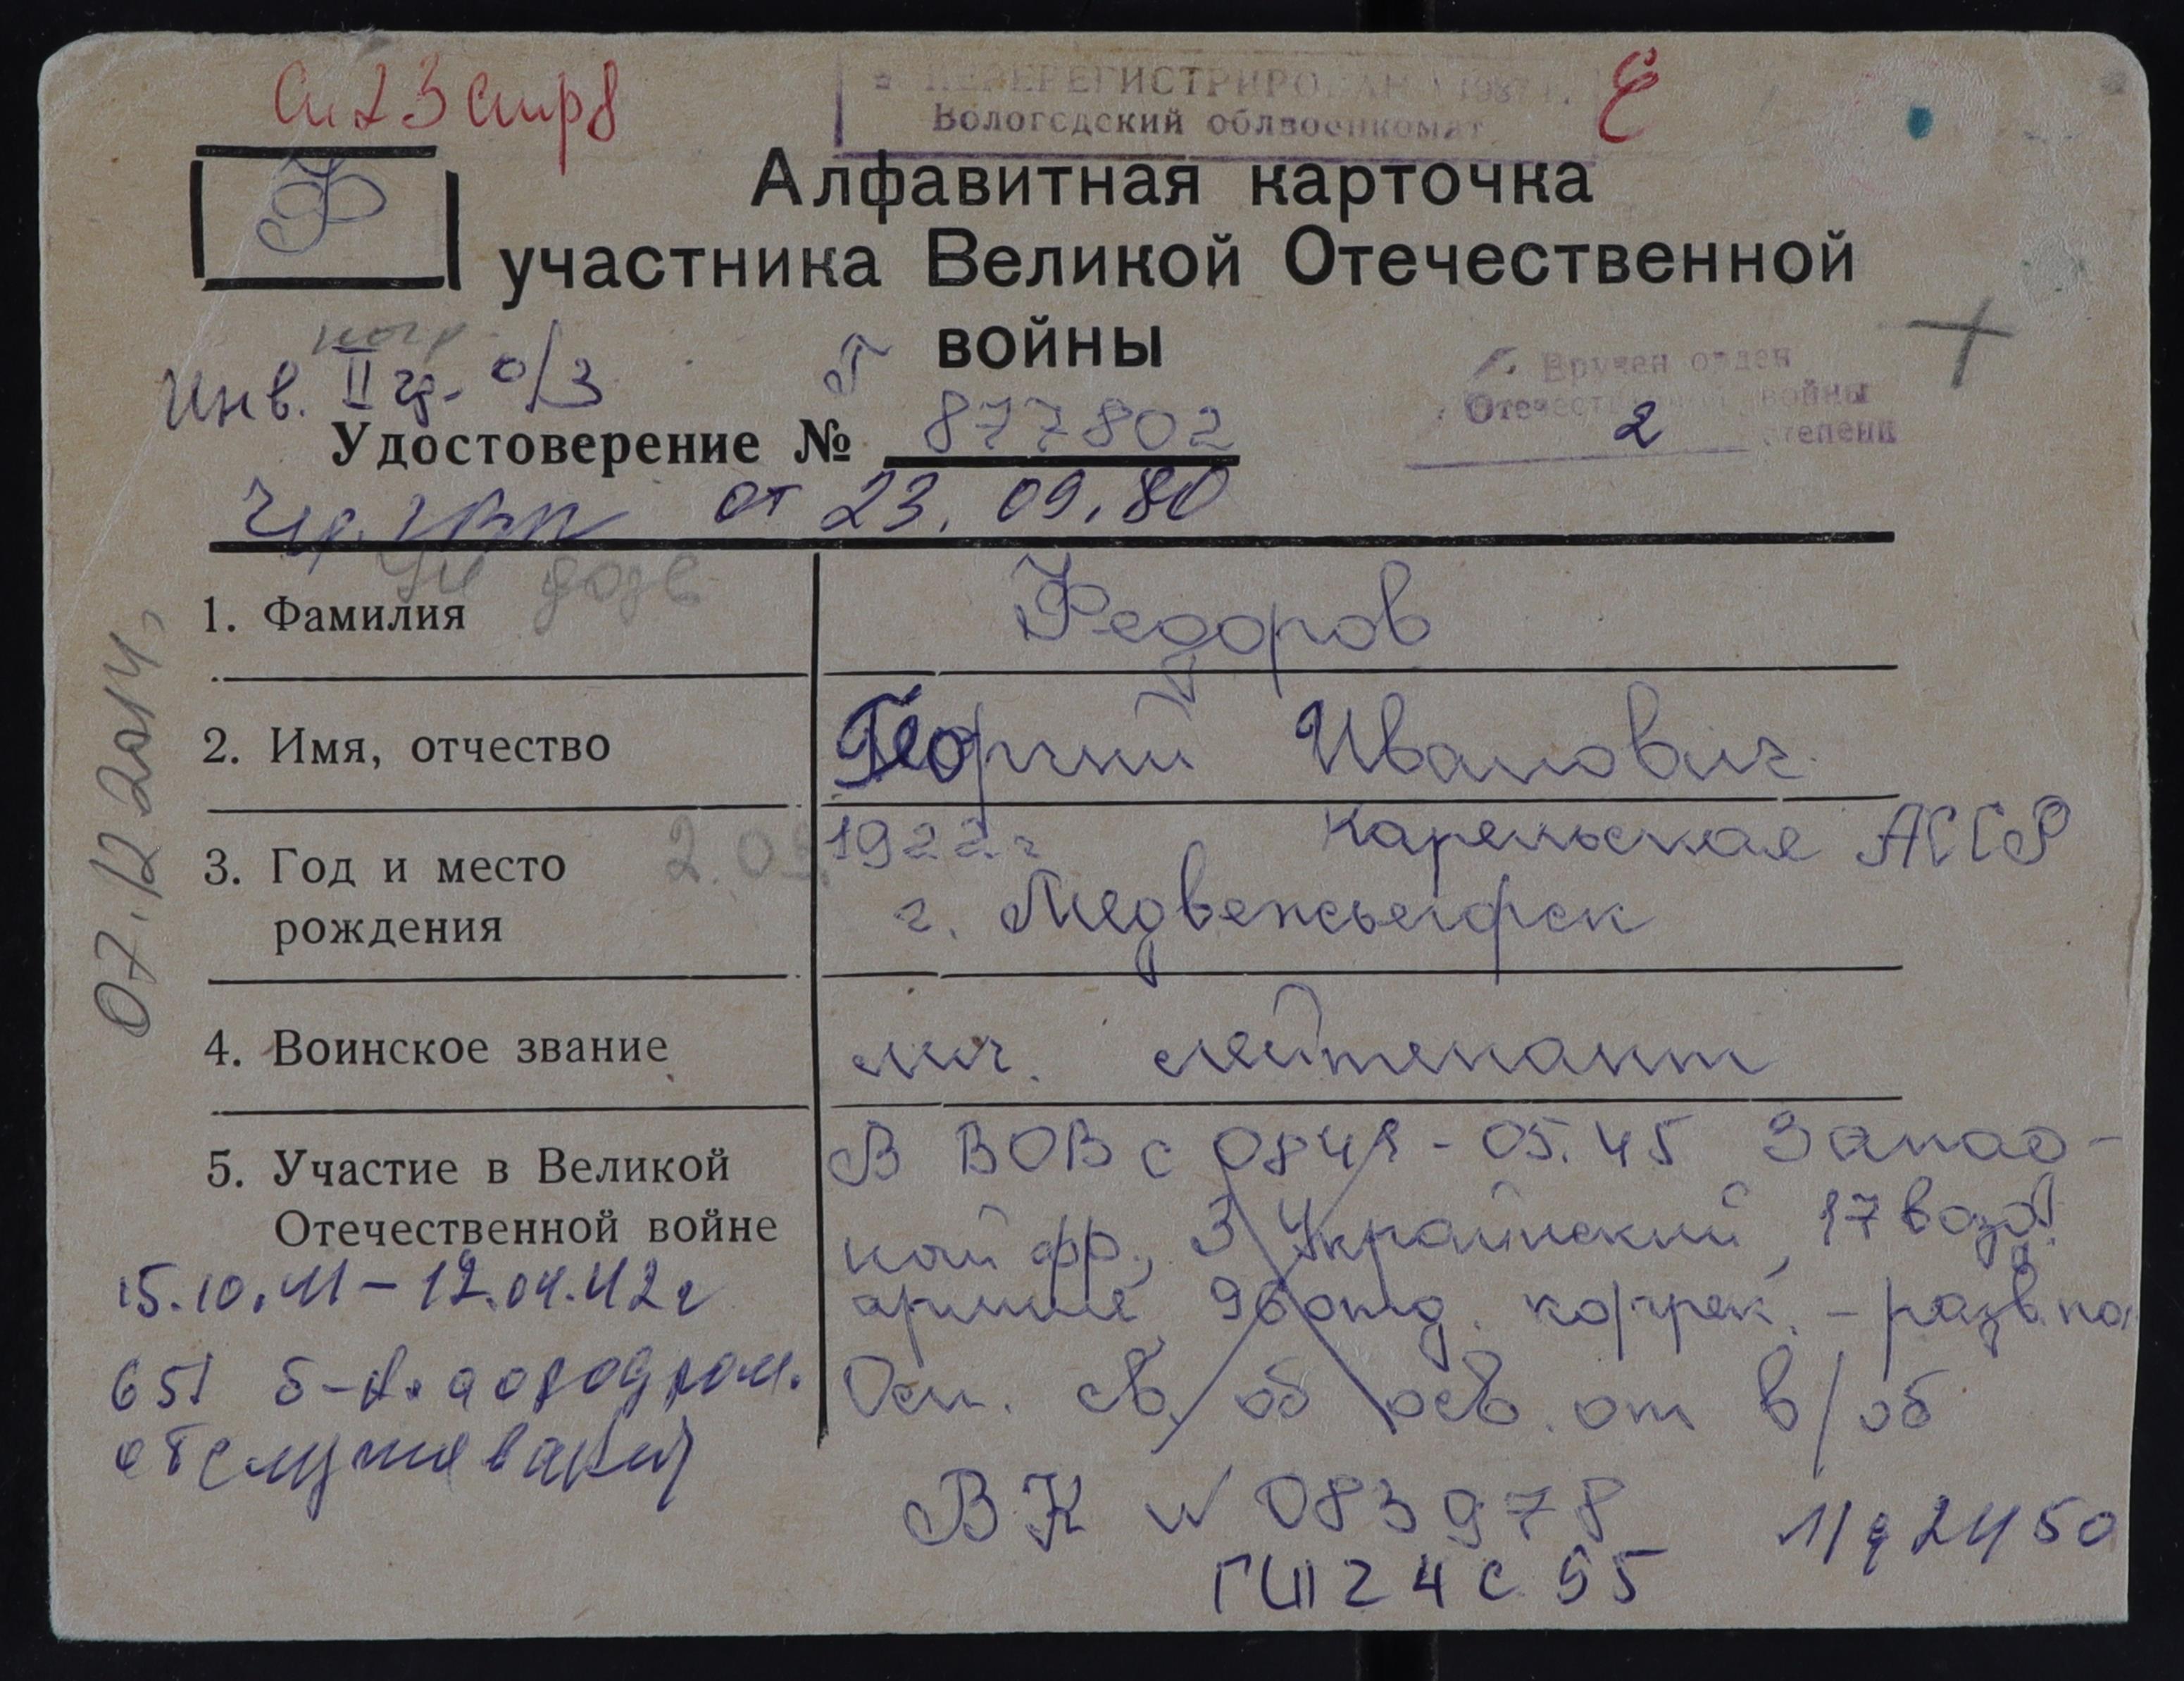 ПЕРЕРЕГИСТРИРОВАН 1987 г.
Вологодский облвоенкомат
Ф
Алфавитная карточка
участника Великой Отечественной
войны
Инв. II гр. о/з
Г
Вручен орден
Отечественной войны
2 степени
Удостоверение № 877802
от 23.09.80
1. Фамилия
Федоров
2. Имя, отчество
Георгий Иванович
3. Год и место
рождения
2.03.
1922 г Карельская АССР
г. Медвежьегорск
4. Воинское звание
мл. лейтенант
5. Участие в Великой
Отечественной войне
В ВОВ с 0841 - 05.45 Запад-
ный фр., 3 Украинский, 17 возд.
армия 96 отд. коррек. - разв.
Осн. св. об осв. от в/об
15.10.41 - 12.04.42 г
651 б-н аэродром.
обслуживания
ВК № 083978
ГШ 24 с 55
И/д 2450
07.12.2014